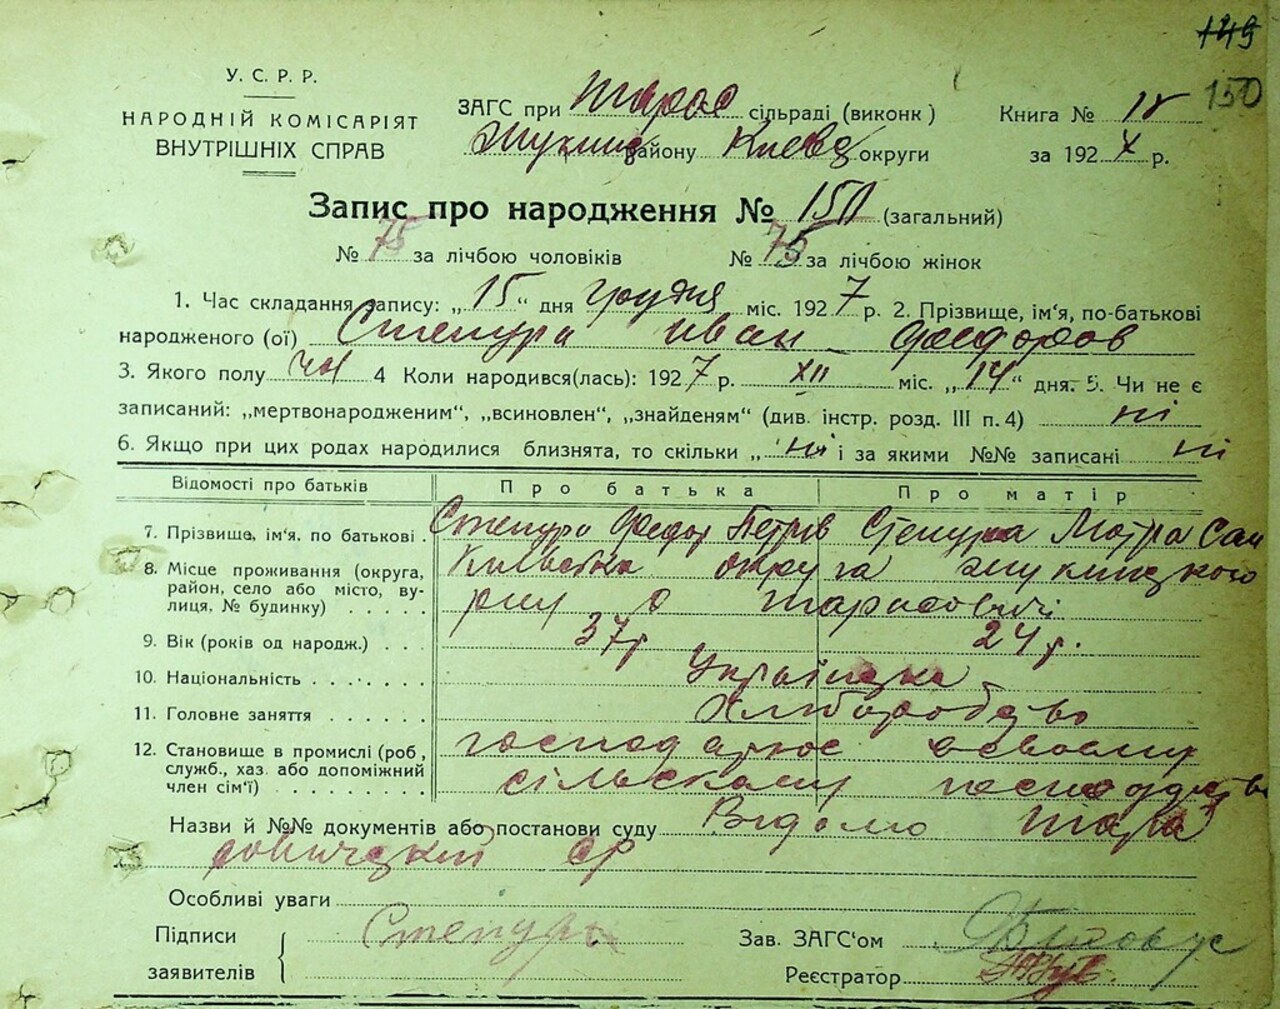 149
150
У. С. Р. Р.
НАРОДНІЙ КОМІСАРІЯТ
ВНУТРІШНІХ СПРАВ
ЗАГС при Тарас сільраді (виконк)
району Києвс округи
Книга №
за 192 р.
Запис про народження № 150 (загальний)
№ 75 за лічбою чоловіків № 75 за лічбою жінок
1. Час складання запису: „15“ дня грудня міс. 1927 р. 2. Прізвище, ім'я, по-батькові
народженого (ої) Степура Иван Федоров
3. Якого полу чол 4 Коли народився(лась): 1927 р. XII міс. „14“ дня. 5. Чи не є
записаний: „мертвонародженим“, „всиновлен“, „знайденям“ (див. інстр. розд. III п. 4) ні
6. Якщо при цих родах народилися близнята, то скільки „ ні і за якими №№ записані ні
Відомості про батьків Про батька Про матір
7. Прізвище, ім'я, по батькові. Степура Федор Петрів Степура Мотра Сам
8. Місце проживання (округа, район, село або місто, вулиця, № будинку) Київська округа Жуклицкого
рну с Тарасовичі
9. Вік (років од народж.) 37р 24р.
10. Національність Українська
11. Головне заняття Хліборобство
12. Становище в промислі (роб, служб., хаз. або допоміжний член сім'ї) господарює всвоему
сільскому господарстві
Назви й №№ документів або постанови суду Відомо Тара
совицкий СР
Особливі уваги
Підписи заявителів Степура
Зав. ЗАГС'ом
Реєстратор